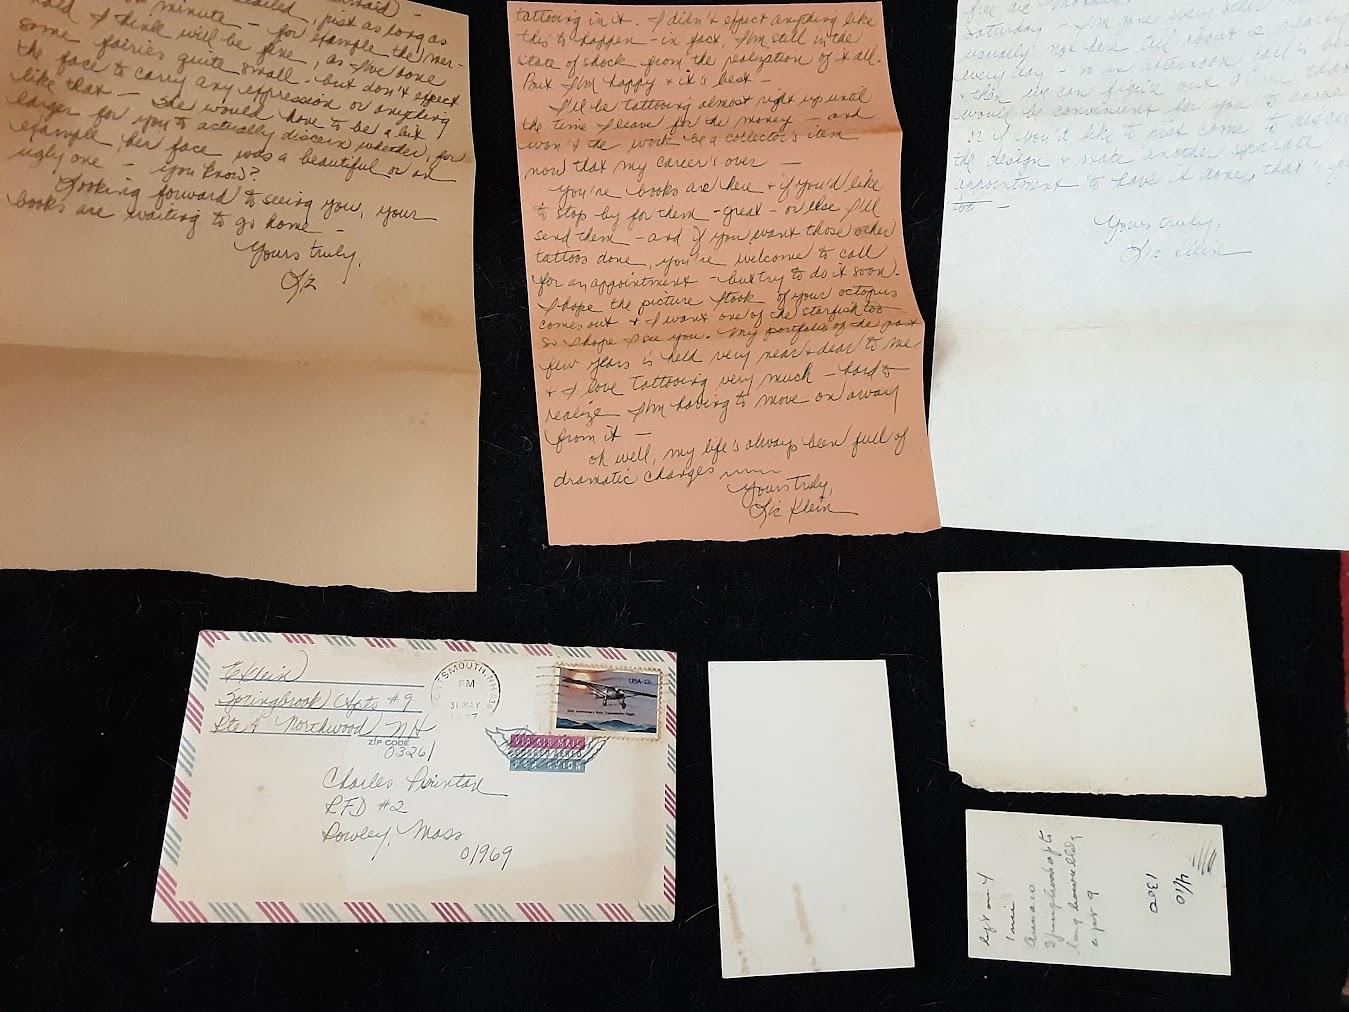 or minute - for example the mer-
hold I think will be fine, as I've done
some fairies quite small - but don't expect
the face to carry any expression or anything
like that - She would have to be a bit
larger for you to actually discern whether, for
example, her face was a beautiful or an
ugly one - you know?
Looking forward to seeing you, your
books are waiting to go home -
Yours truly,
Liz
tattooing in it. I didn't expect anything like
this to happen - in fact, I'm still in the
state of shock from the realization of it all.
But I'm happy & it's best -
I'll be tattooing almost right up until
the time I leave for the money - and
won't the work be a collector's item
now that my career's over -
You're books are here & if you'd like
to stop by for them - great - or else I'll
send them - and if you want those other
tattoos done, you're welcome to call
for an appointment - but try to do it soon.
I hope the picture I took of your octopus
comes out & I want one of the starfish too
so I hope I see you. My portfolio of the past
few years is held very near & dear to me
& I love tattooing very much - hard to
realize I'm having to move on away
from it -
oh well, my life's always been full of
dramatic changes
Yours truly,
Liz Klein
Saturday - I'm gone every other
usually not here till about
every day - so an afternoon call is best
& then we can figure out a time that
would be convenient for you to come
or if you'd like to just come to discuss
the design & make another separate
appointment to have it done, that's
Yours truly,
Liz Klein
E Klein
Springbrook Apts #9
Rte 4 Northwood NH
ZIP CODE
03261
SMOUTH, NH
PM
31 MAY
1977
USA 13c
50th Anniversary Solo Transatlantic Flight
VIA AIR MAIL
CORREO AEREO
PAR AVION
Charles
RFD #2
Rowley, Mass
01969
left on 4
1 mi
Springbrook apts
long brown bldg
apt 9
1300
4/10